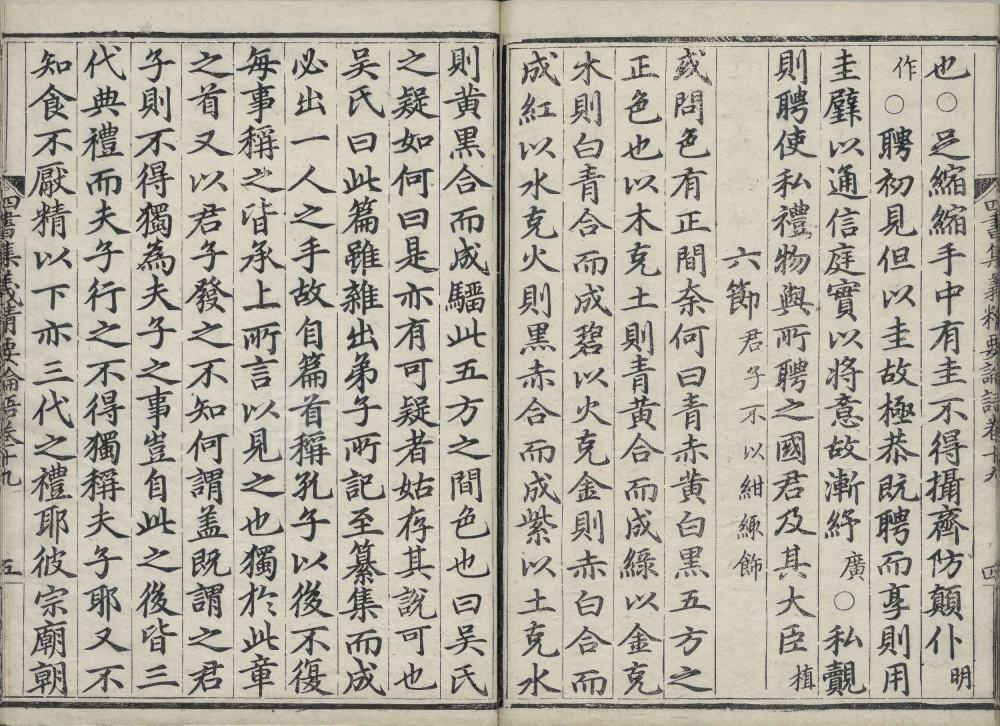 也○足縮縮手中有圭不得攝齊防顛仆明
作○聘初見但以圭故極恭既聘而享則用
圭璧以通信庭實以將意故漸紓廣○私覿
則聘使私禮物與所聘之國君及其大臣植
六節君子不以紺緅飾
或問色有正間奈何曰青赤黄白黑五方之
正色也以木克土則青黄合而成綠以金克
木則白青合而成碧以火克金則赤白合而
成紅以水克火則黑赤合而成紫以土克水
四書集義精要論語卷十九 四
則黄黑合而成騮此五方之間色也曰吳氏
之疑如何曰是亦有可疑者姑存其說可也
吳氏曰此篇雖雜出弟子所記至纂集而成
必出一人之手故自篇首稱孔子以後不復
每事稱之皆承上所言以見之也獨於此章
之首又以君子發之不知何謂盖既謂之君
子則不得獨為夫子之事豈自此之後皆三
代典禮而夫子行之不得獨稱夫子耶又不
知食不厭精以下亦三代之禮耶彼宗廟朝
四書集義精要論語卷十九 五